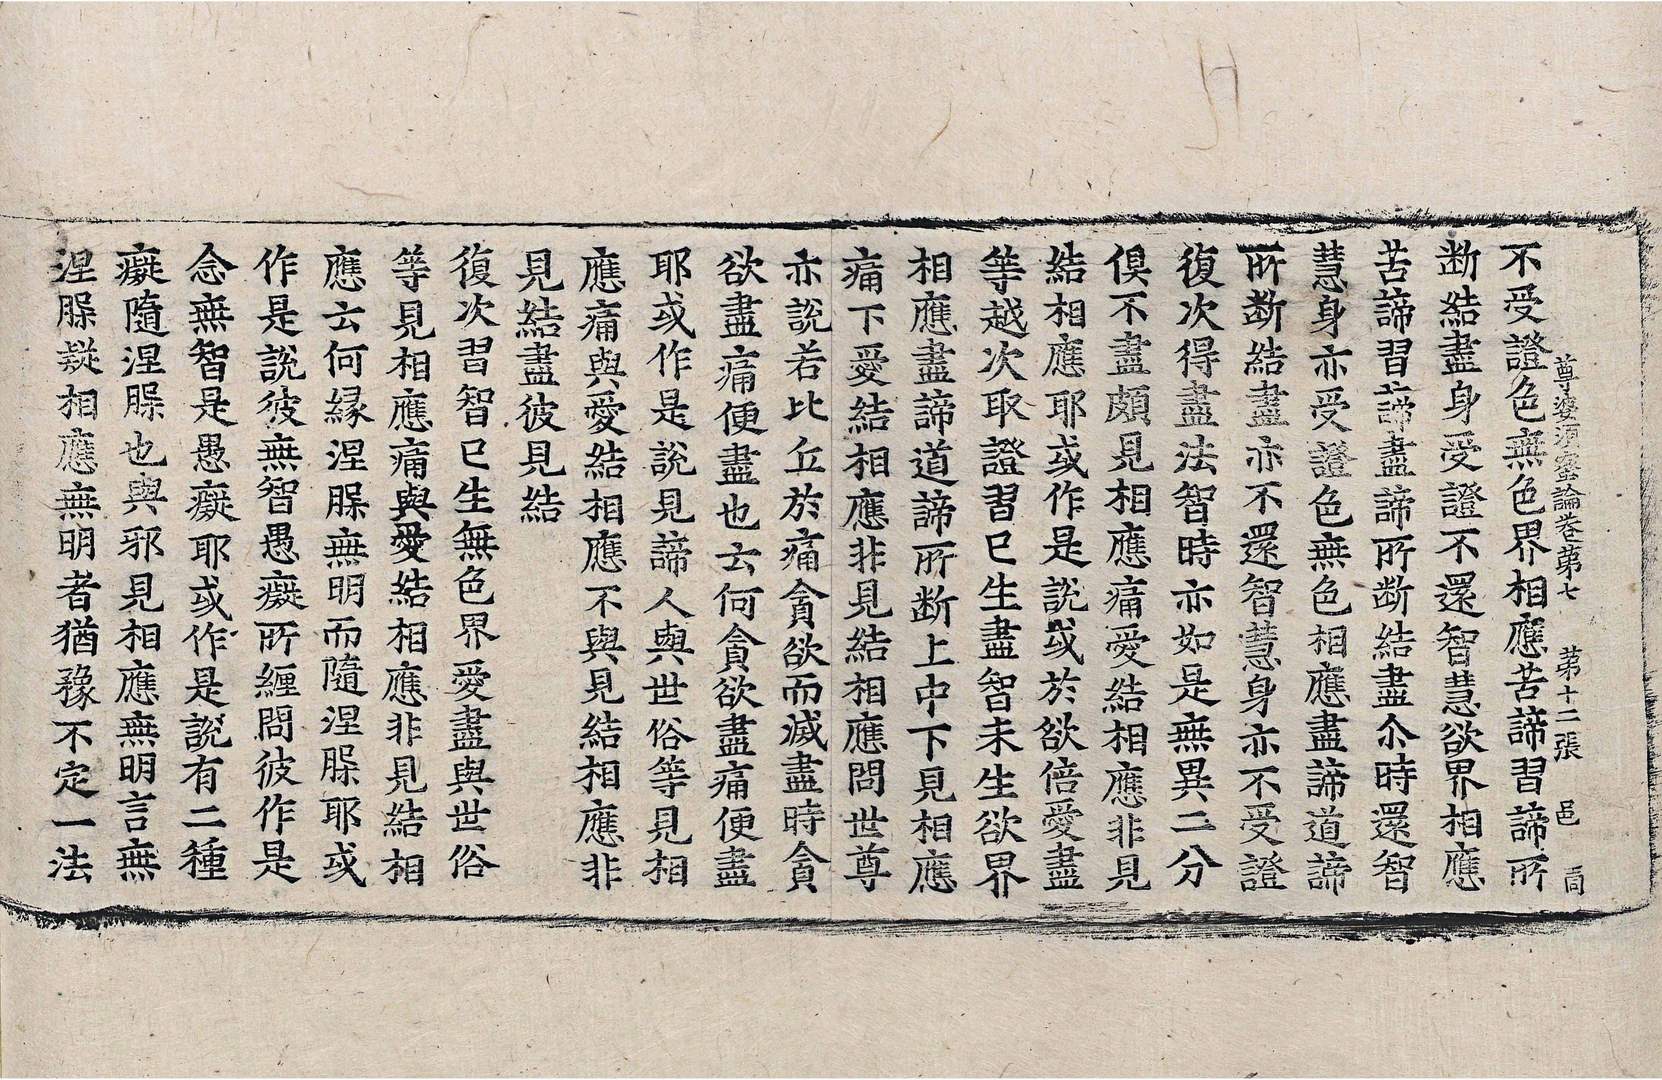 尊婆須蜜論卷第七　第十二張　邑
不受證色無色界相應苦諦習諦所
断結盡身受證不還智慧欲界相應
苦諦習諦盡諦所断結盡尒時還智
慧身亦受證色無色相應盡諦道諦
所断結盡亦不還智慧身亦不受證
復次得盡法智時亦如是無異二分
俱不盡頗見相應痛愛結相應非見
結相應耶或作是說或於欲倍愛盡
等越次取證習已生盡智未生欲界
相應盡諦道諦所断上中下見相應
痛下愛結相應非見結相應問世尊
亦說若比丘於痛貪欲而滅盡時貪
欲盡痛便盡也云何貪欲盡痛便盡
耶或作是說見諦人與世俗等見相
應痛與愛結相應不與見結相應非
見結盡彼見結
復次習智已生無色界愛盡與世俗
等見相應痛與愛結相應非見結相
應云何縁涅槃無明而隨涅槃耶或
作是說彼無智愚癡所纏問彼作是
念無智是愚癡耶或作是說有二種
癡隨涅槃也與邪見相應無明言無
涅槃疑相應無明者猶豫不定一法